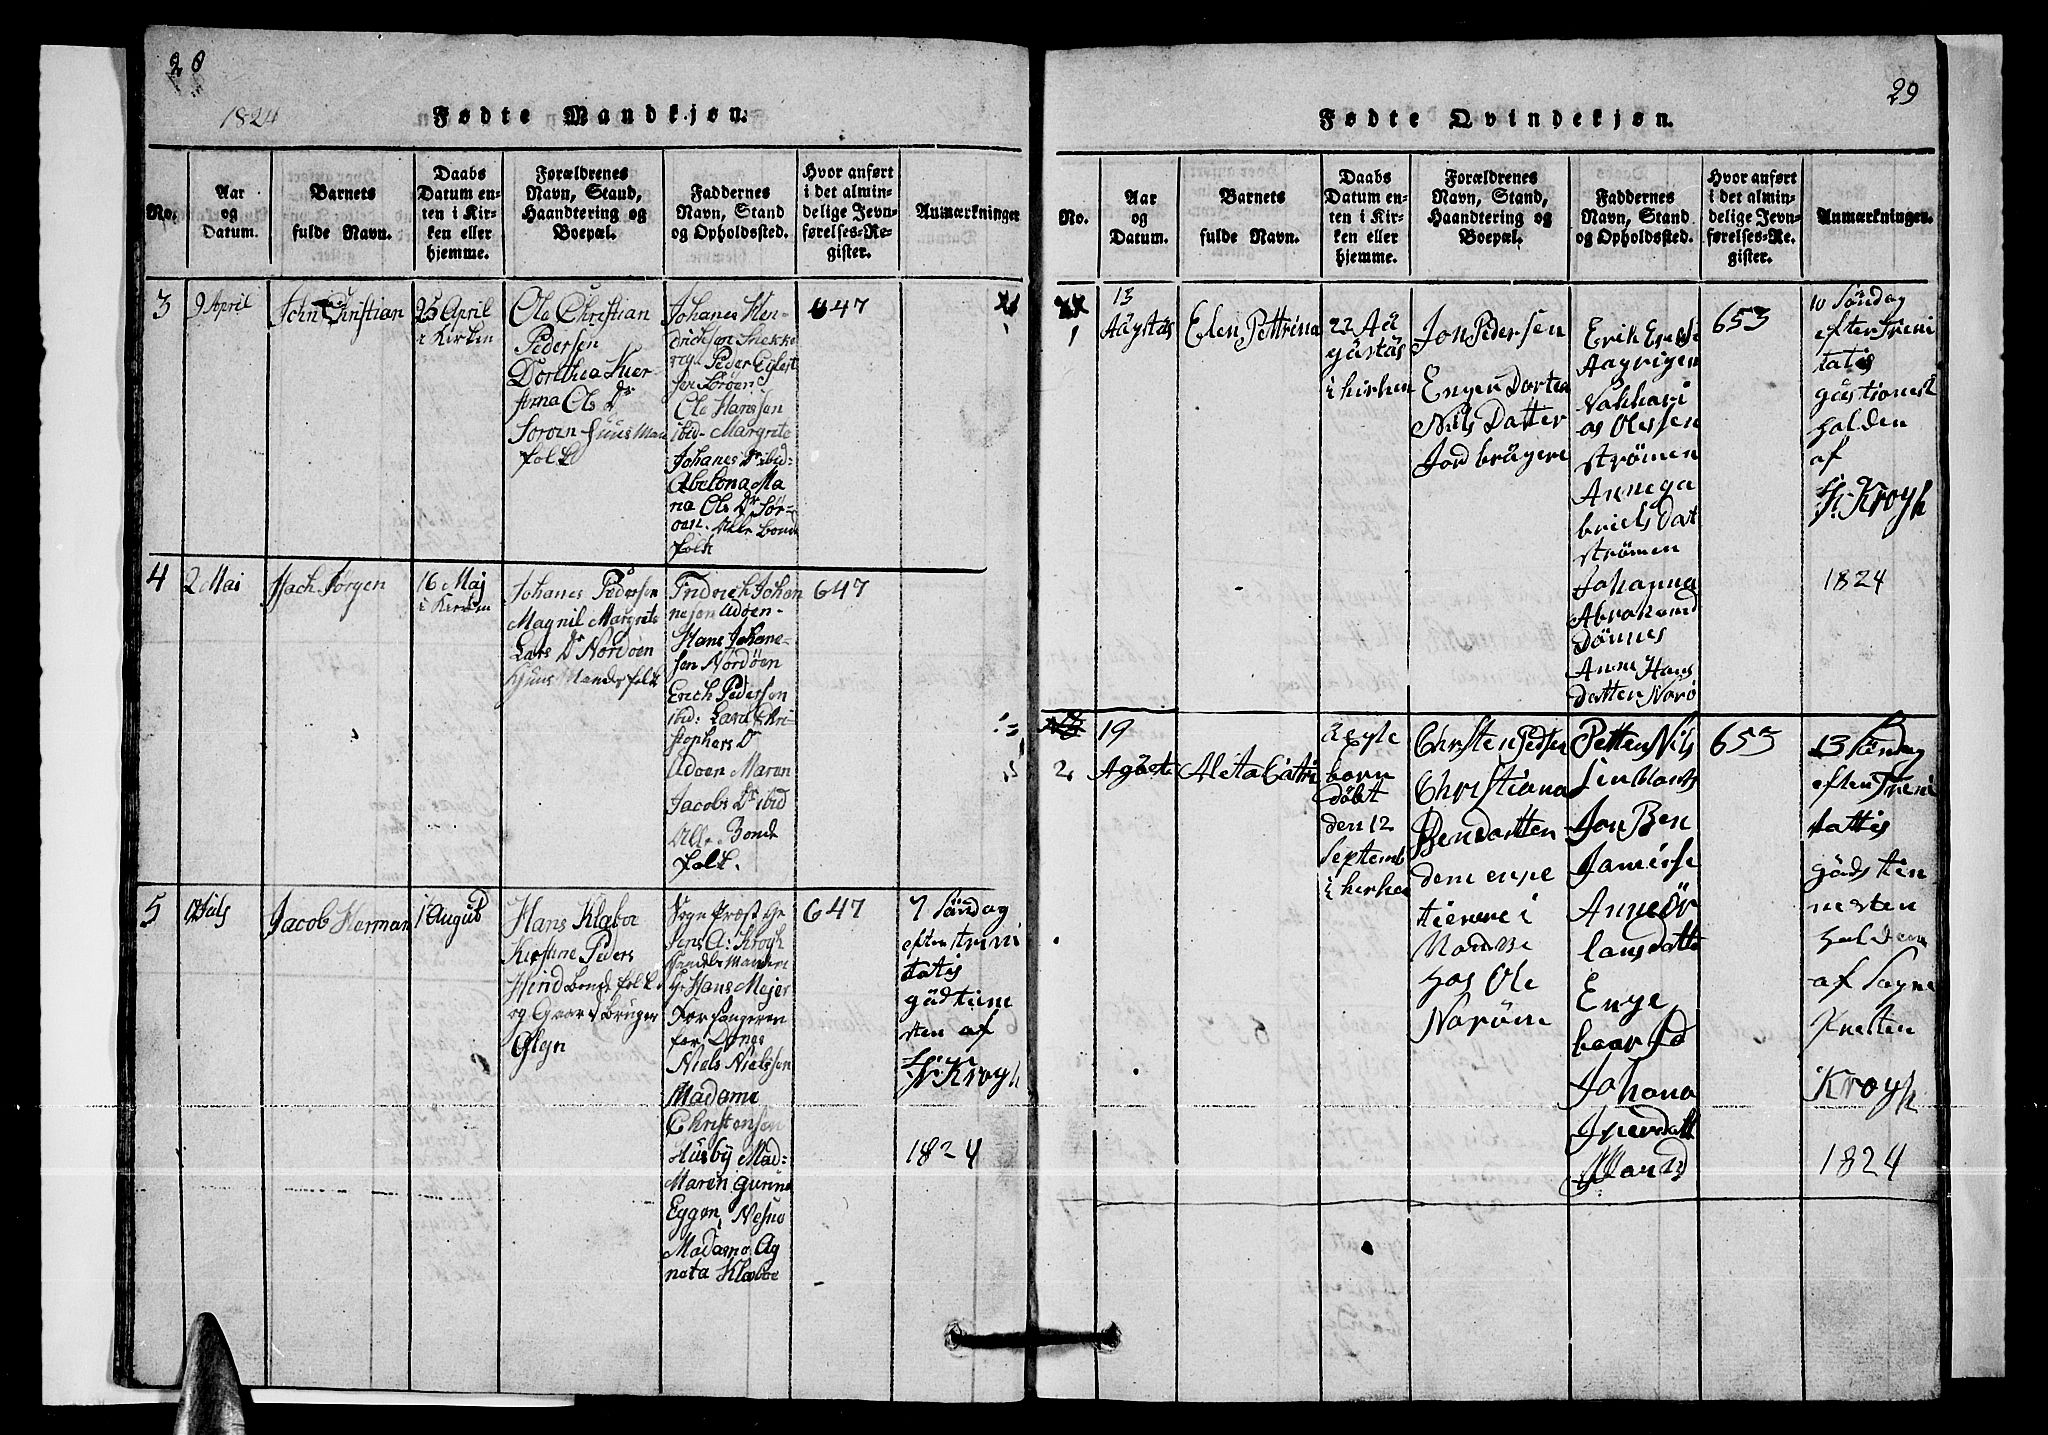 28
1824
Fødte Mandkjøn.
No.
Aar
og
Datum.
Barnets
fulde Navn.
Daabs
Datum en-
ten i Kir-
ken eller
hjemme.
Forældrenes
Navn, Stand,
Haandtering og
Boepæl.
Faddernes
Navn, Stand
og Opholdssted.
Hvor anført
i det almin-
delige Jevn-
førelses-Re-
gister.
Anmærkninger
3
9 April
John Christian
25 April
i Kirken
Ole Christian
Pedersen
Dorthea Kier-
stina Ols Dr
Sorøen Huus Man
folk
Johanes Hen-
drichsen
Peder
Sørøen
Ole Hanssen
ibid- Margrite
Johanes Dr ibid:
Abelona Ma
na Ols Dr Sør-
øen. Alle Bonde
folk
647
4
2 Mai
Isach Jørgen
16 Maj
i Kirken
Johanes Pedersen
Magnil Margrete
Lars Dr Nordøen
Huus Mands folk
Fridrich Johan
nesen Udøen-
Hans Johane-
sen Nordøen
Erich Pedersen
ibid: Lava Chri-
stophers Dr
Udøen Maren
Jacobs Dr ibid
Alle Bonde
folk.
647
5
Juls
Jacob Herman
1 August
Hans Klæboe
Kirstine Peders
Hind Bonde folk
og Gaard Bruger
Glyn
Sogne Præst
Jens A: Krogh
Handels Mandene
Hr Hans Mejer
Forsangeren
for Dønes
Niels Nielssen
Madame
Christensen
Husby Mad=
Maren Gurina
Eggen, Nesno
Madame Ag
neta Klæboe
647
7 Søndag
efter trini
tatis
gudtiene
sten af
Hr. Krogh
1824
29
Fødte Qvindekjøn.
No.
Aar
og
Datum.
Barnets
fulde Navn.
Daabs
Datum en-
ten i Kir-
ken eller
hjemme.
Forældrenes
Navn, Stand,
Haandtering og
Boepæl.
Faddernes
Navn, Stand
og Opholdssted.
Hvor anført
i det almin-
delige Jevn-
førelses-Re-
gister.
Anmærkninger.
1
13
Augstus
Elen Pettrina
22 Au
gustus
i kirken
Jon Pedersen
Engen Dortea
Nils Datter
Jordbrugere
Erik
Aagrigen
Sakkari
as Olessen
strømen
Anne ga
briels Dat
strømen
Johanna
Abrahamd
Dønnes
Anne Hans
datten Norø
653
10 Søndag
efter treni
tatis
gustienest
holden
af
Hr. Krogh
1824
2
19
Aguste
Aleta Catri
Aegte
barn
døbt
den 12
Septemb
i kirken
Christen Pedsen
Christiana
Bendatten
dem enge
tienere i
Hos Ole
Norøine
Petten Nils
sen
Jon Ben
Jameisse
Anne Ør
lansdatte
Enge
baarsd
Johana
653
13 Søndag
efter treni
tattis
guds tien
nesten
holden
af Sogne
Presten
Krogh
1824